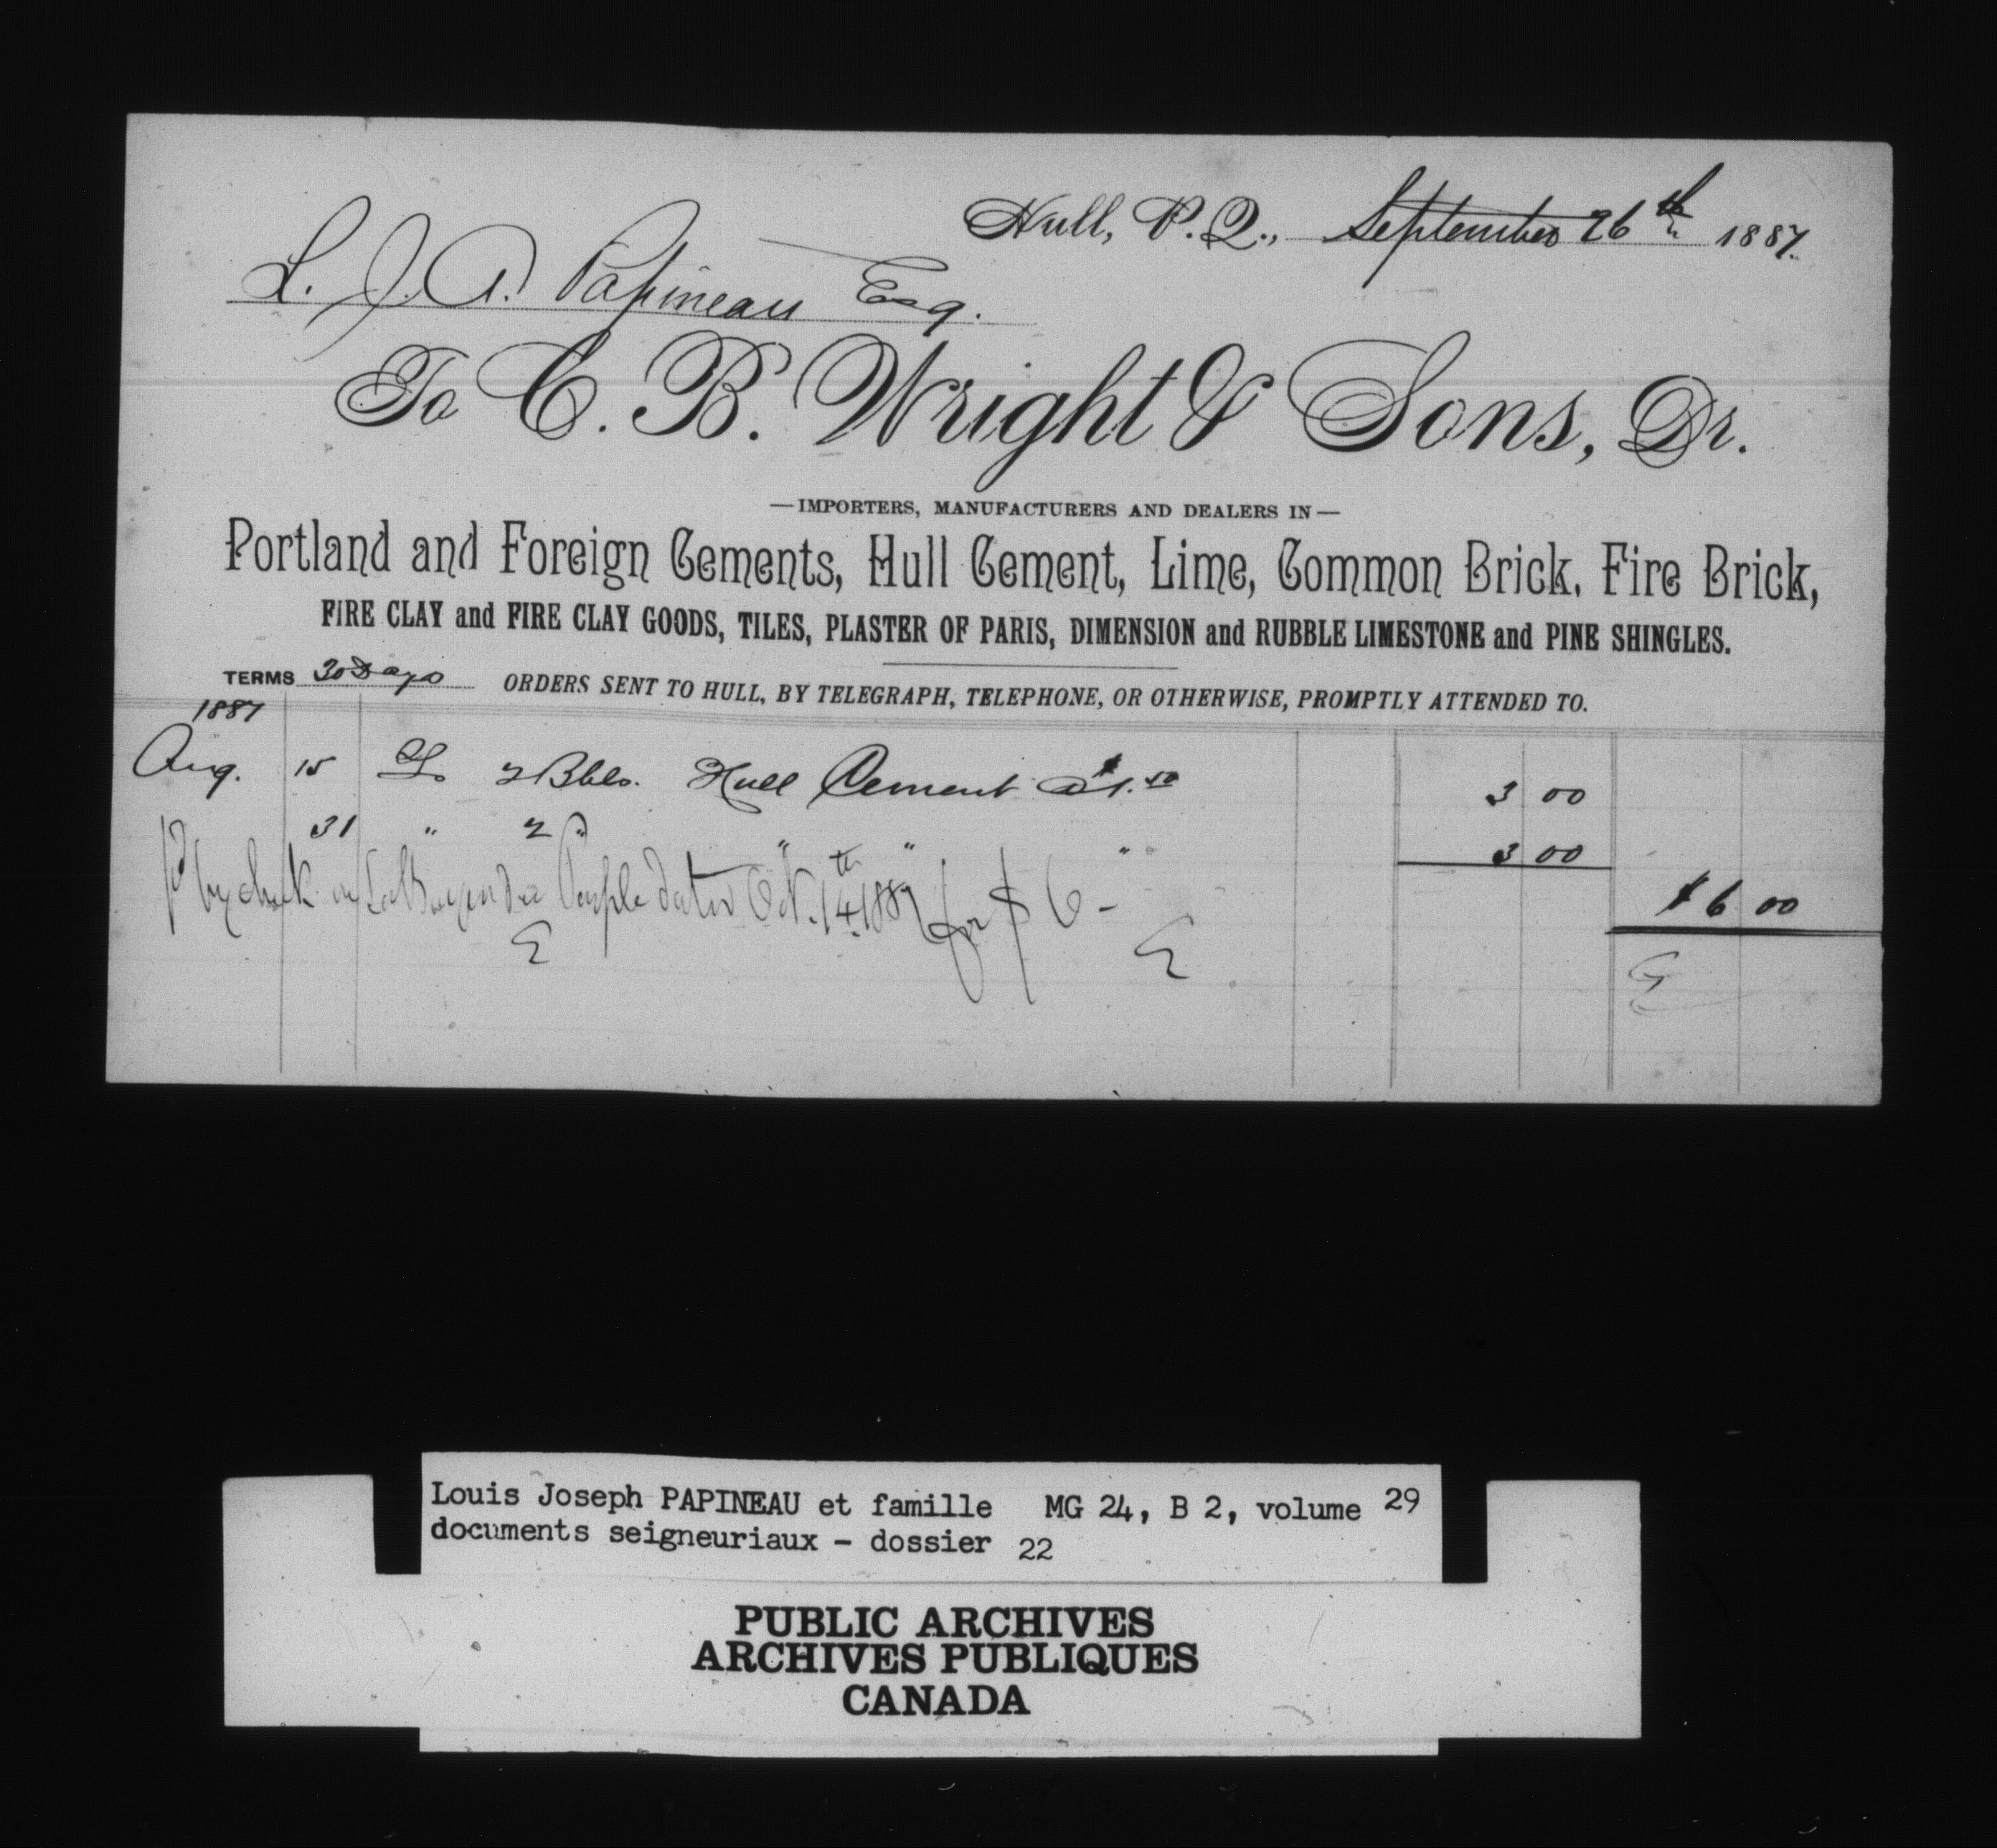 Hull, P. Q., September 26th 1887.
L. J. A. Papineau Esq.
To C. B. Wright & Sons, Dr.
—IMPORTERS, MANUFACTURERS AND DEALERS IN—
Portland and Foreign Cements, Hull Cement, Lime, Common Brick, Fire Brick,
FIRE CLAY and FIRE CLAY GOODS, TILES, PLASTER OF PARIS, DIMENSION and RUBBLE LIMESTONE and PINE SHINGLES.
TERMS 30 Days ORDERS SENT TO HULL, BY TELEGRAPH, TELEPHONE, OR OTHERWISE, PROMPTLY ATTENDED TO.
1887
Aug. 15 To 2 Bbls. Hull Cement @ $1.50 3 00
31 " 2 " " " " 3 00
$6 00
by check on La Banque du Peuple dated Oct. 14th 1887 for $6-
Louis Joseph PAPINEAU et famille MG 24, B 2, volume 29
documents seigneuriaux - dossier 22
PUBLIC ARCHIVES
ARCHIVES PUBLIQUES
CANADA